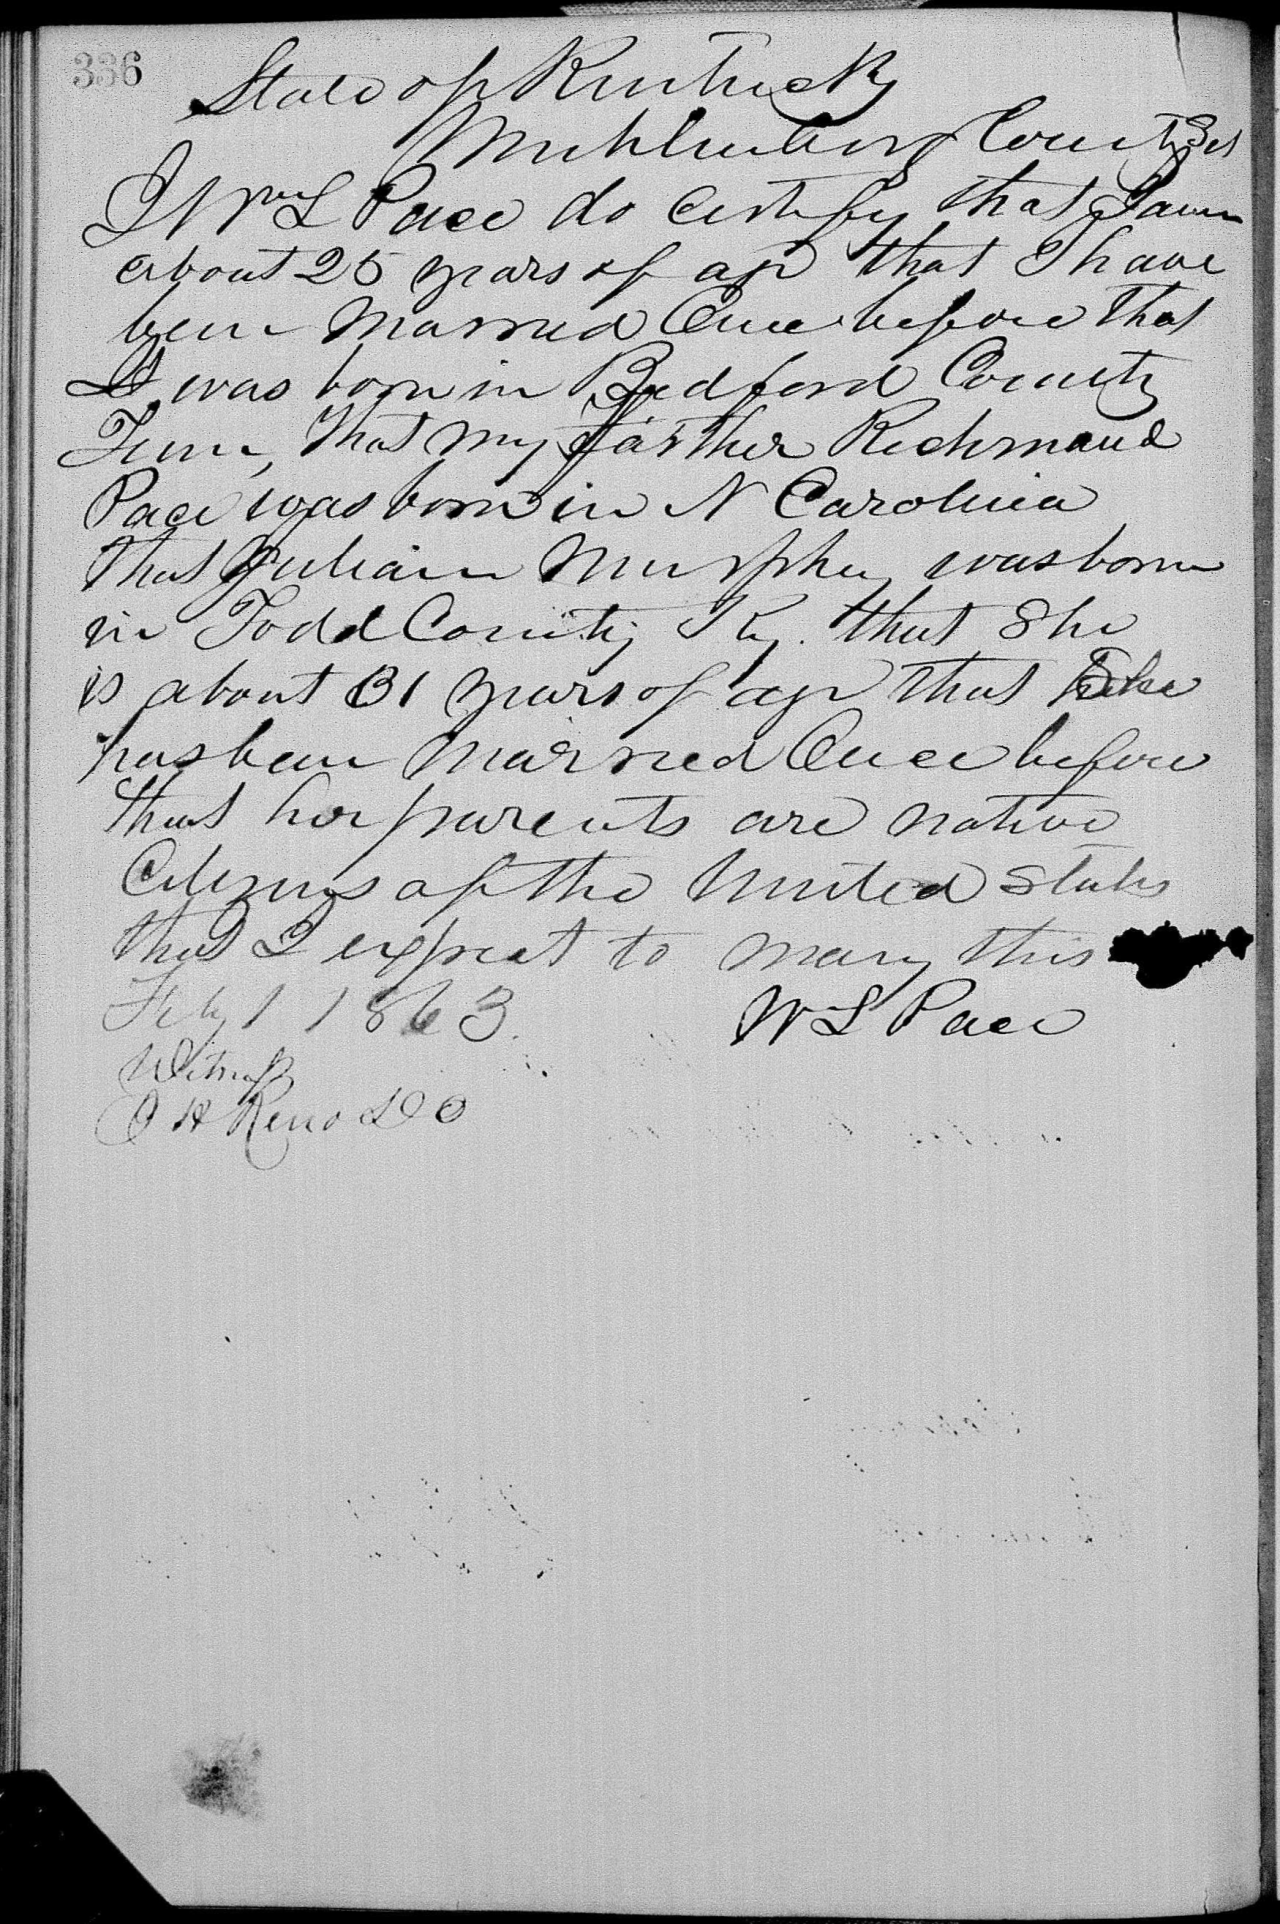 336
State of Kentucky
Muhlenberg County Sct
I Wm L Pace do certify that I am
about 25 years of age that I have
been married Once before that
I was born in Bedford County
Tenn, that my farther Richmond
Pace was born in N Carolina
that Julian Murphey was born
in Todd County Ky. that She
is about 31 years of age that She
has been married Once before
that her parents are native
Citizens of the United States
that I expect to mary this
Feby 1 1863.
W L Pace
Witness
J H Reno D C